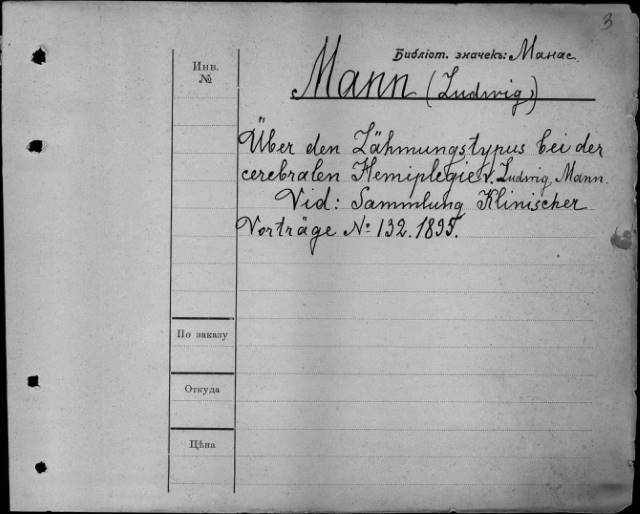 3
Библіот. значекъ: Манас.
Инв.
№
Mann (Ludwig)
Über den Lähmungstypus bei der
cerebralen Hemiplegie v. Ludwig Mann.
Vid: Sammlung Klinischer
Vorträge No: 132. 1895.
По заказу
Откуда
Цѣна